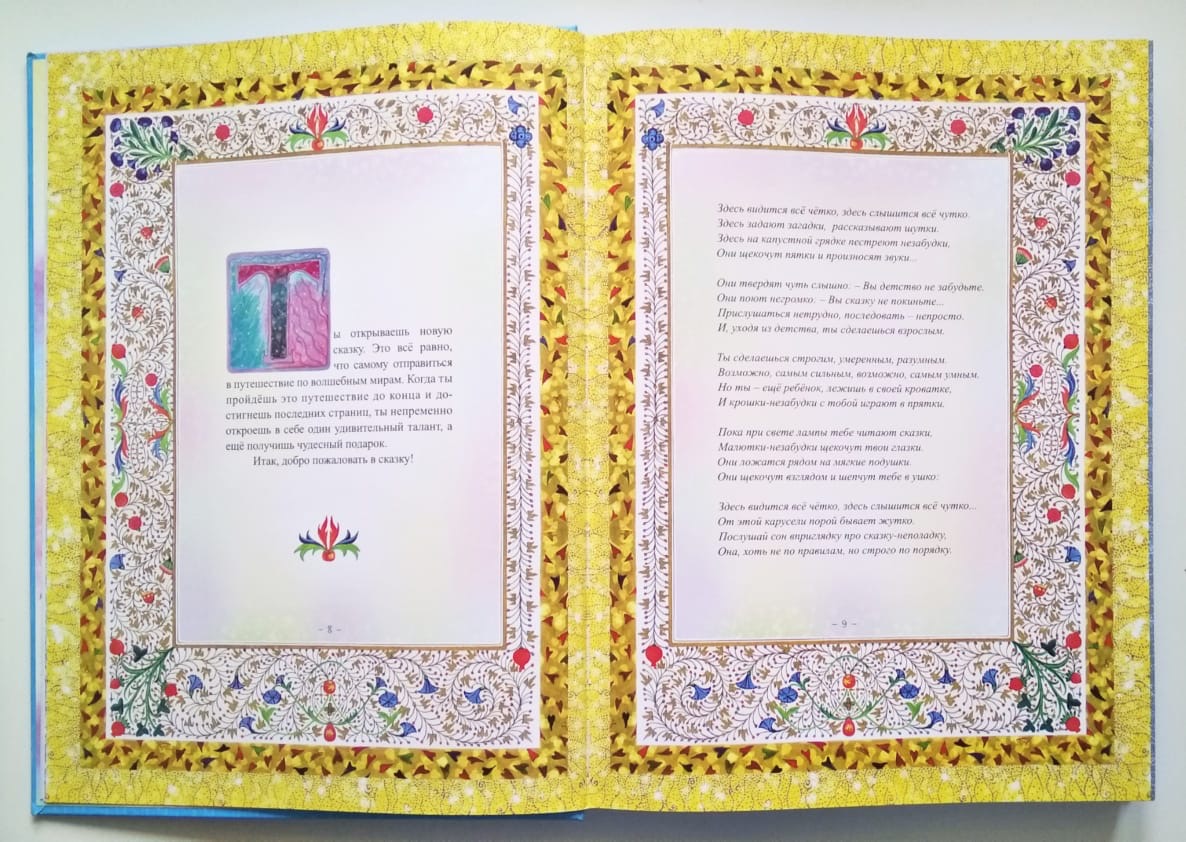 Ты открываешь новую
сказку. Это всё равно,
что самому отправиться
в путешествие по волшебным мирам. Когда ты
пройдёшь это путешествие до конца и до-
стигнешь последних страниц, ты непременно
откроешь в себе один удивительный талант, а
ещё получишь чудесный подарок.
Итак, добро пожаловать в сказку!
– 8 –
Здесь видится всё чётко, здесь слышится всё чутко.
Здесь задают загадки, рассказывают шутки.
Здесь на капустной грядке пестреют незабудки,
Они щекочут пятки и произносят звуки...
Они твердят чуть слышно: – Вы детство не забудьте.
Они поют негромко: – Вы сказку не покиньте...
Прислушаться нетрудно, последовать – непросто.
И, уходя из детства, ты сделаешься взрослым.
Ты сделаешься строгим, умеренным, разумным.
Возможно, самым сильным, возможно, самым умным.
Но ты – ещё ребёнок, лежишь в своей кроватке,
И крошки-незабудки с тобой играют в прятки.
Пока при свете лампы тебе читают сказки,
Малютки-незабудки щекочут твои глазки.
Они ложатся рядом на мягкие подушки.
Они щекочут взглядом и шепчут тебе в ушко:
Здесь видится всё чётко, здесь слышится всё чутко...
От этой карусели порой бывает жутко.
Послушай сон вприглядку про сказку-неполадку,
Она, хоть не по правилам, но строго по порядку.
– 9 –